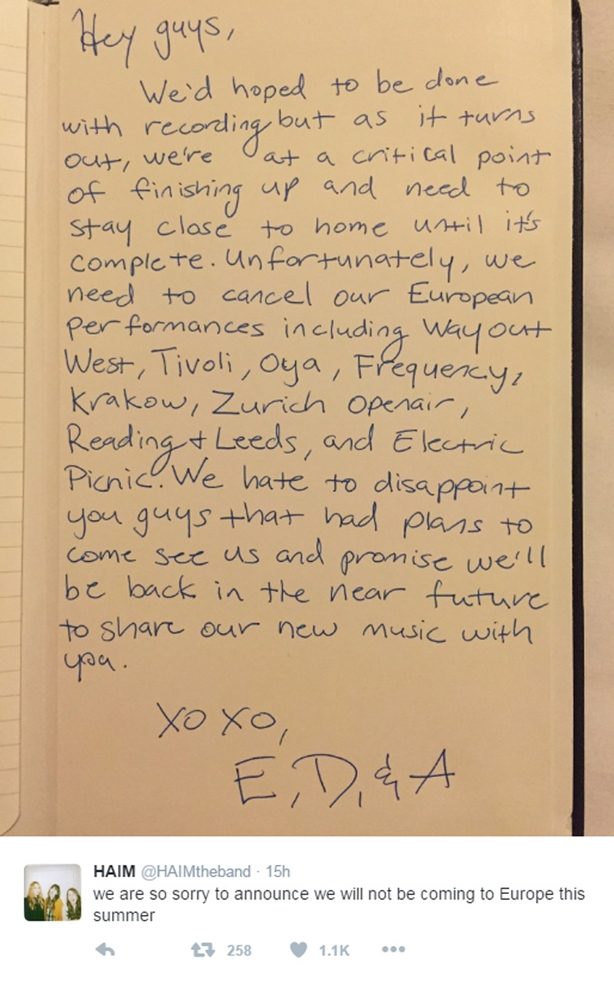 Hey guys,
We'd hoped to be done
with recording but as it turns
out, we're at a critical point
of finishing up and need to
stay close to home until it's
complete. Unfortunately, we
need to cancel our European
performances including Way out
West, Tivoli, Oya, Frequency,
Krakow, Zurich Openair,
Reading + Leeds, and Electric
Picnic. We hate to disappoint
you guys that had plans to
come see us and promise we'll
be back in the near future
to share our new music with
you.
XOXO,
E, D, & A
HAIM @HAIMtheband · 15h
we are so sorry to announce we will not be coming to Europe this
summer
258 1.1K